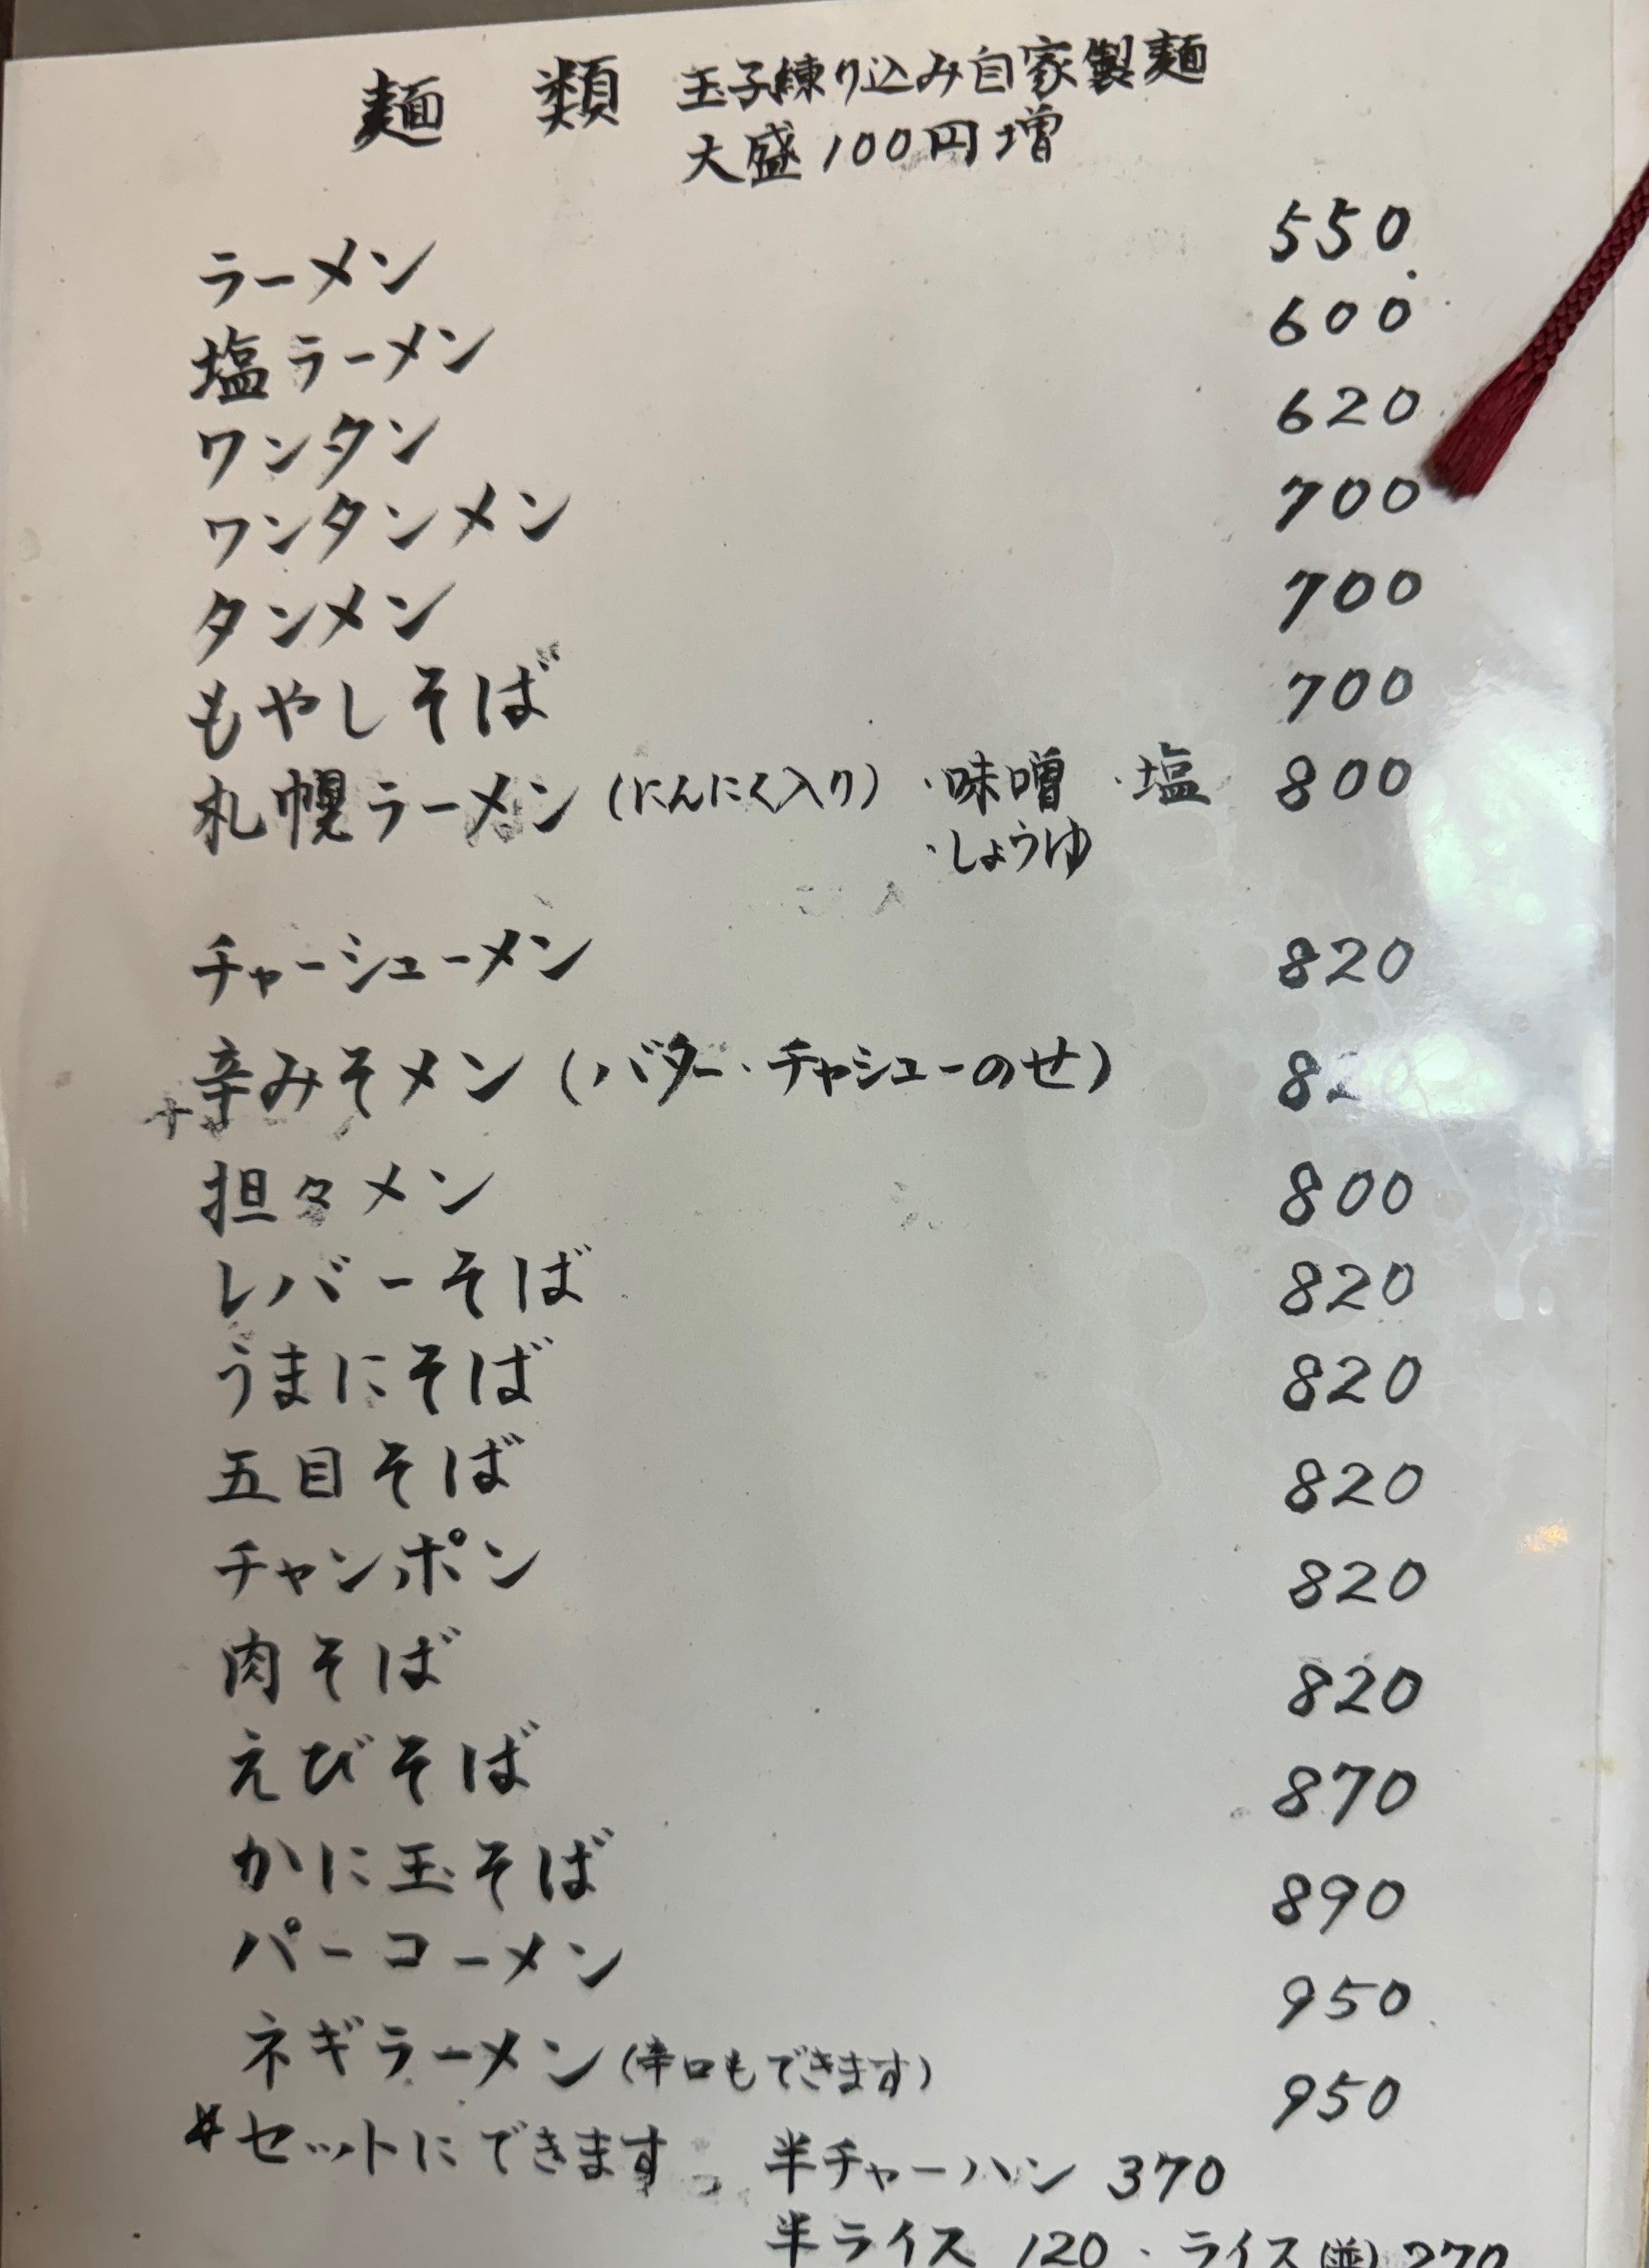 麺 類 玉子練り込み自家製麺
大盛100円増
ラーメン 550
塩ラーメン 600
ワンタン 620
ワンタンメン 700
タンメン 700
もやしそば 700
札幌ラーメン (にんにく入り) ・味噌 ・塩 800
・しょうゆ
チャーシューメン 820
辛みそメン (バター、チャシューのせ)
担々メン 800
レバーそば 820
うまにそば 820
五目そば 820
チャンポン 820
肉そば 820
えびそば 870
かに玉そば 890
パーコーメン 950
ネギラーメン (辛口もできます) 950
*セットにできます。 半チャーハン 370
半ライス 120・ライス(並) 270